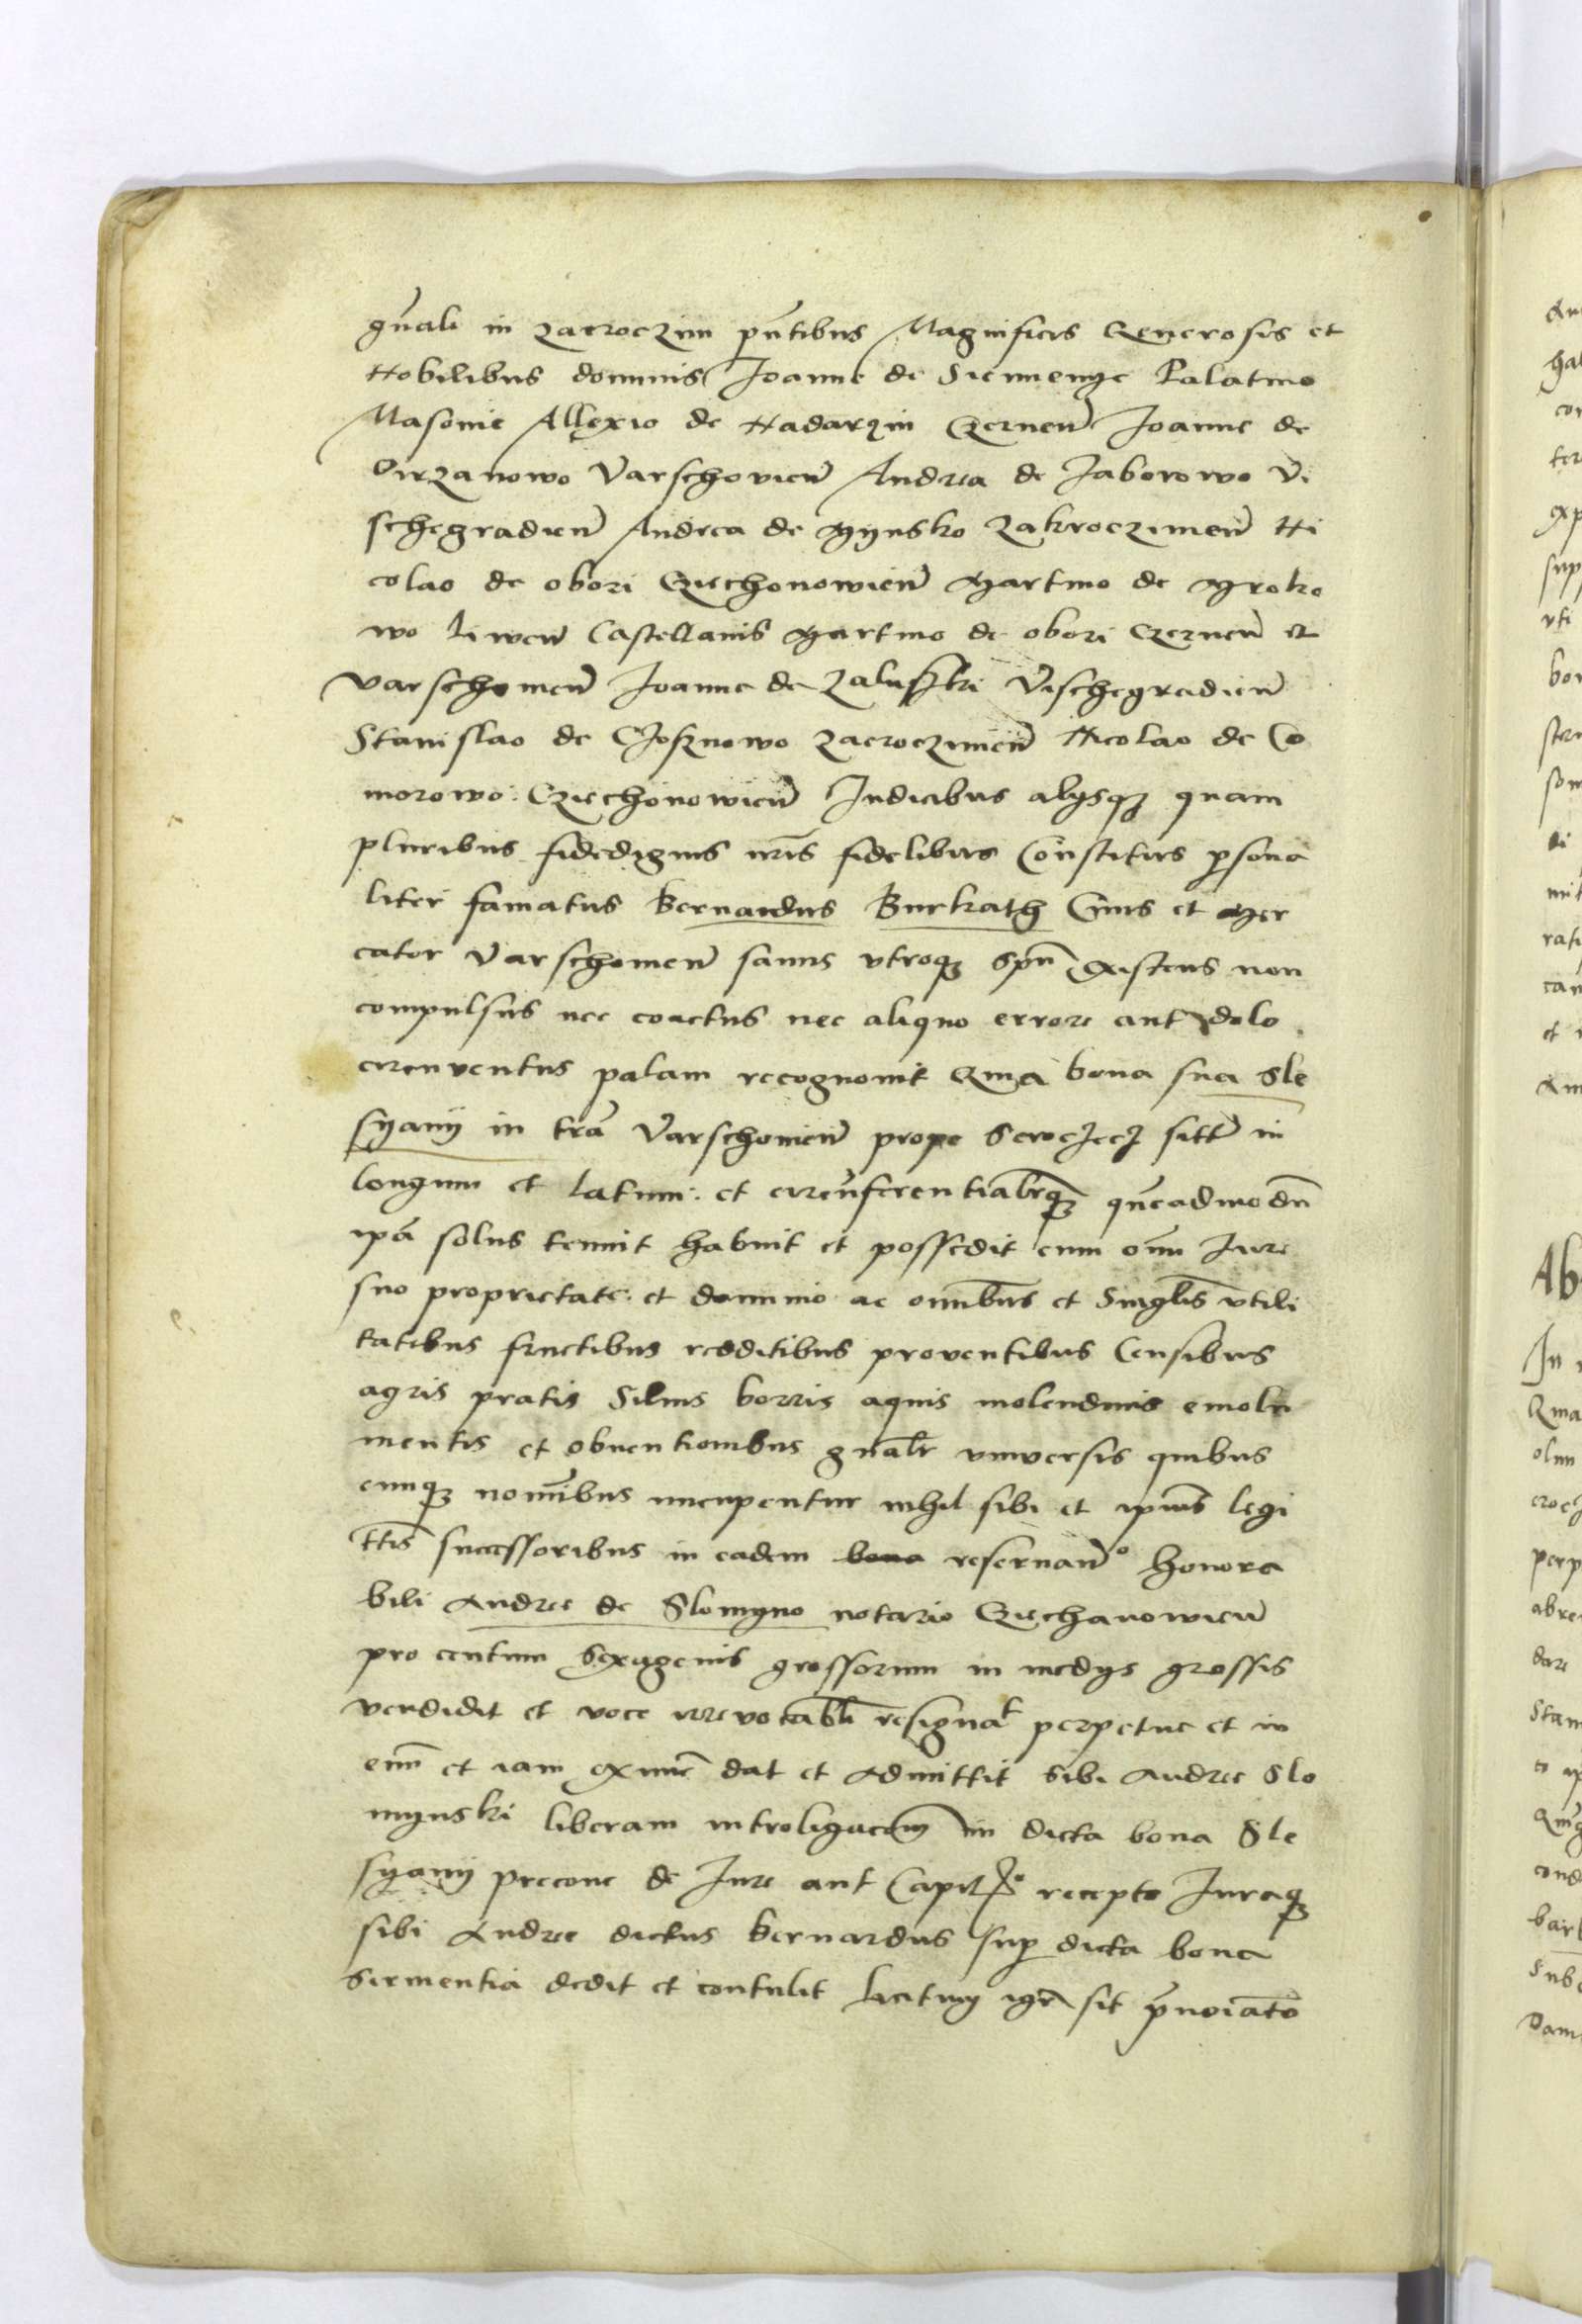 gñali in Zacroczim pñtibus Magnificis Generosis et
Nobilibus dominis Joanne de Siemienye Palatino
Masovie Allexio de Nadarzin Czerneñ Joanne de
Dirzanowo Varschovieñ Andrea de Jaborowo Vi
schegradieñ Andrea de Mynsko Zakroczimeñ Ni
colao de obori Cziechonowieñ Martino de Mroko
wo Liweñ Castellanis Martino de obori Czerneñ et
Varschovieñ Joanne de Zaluski Vischegradieñ
Stanislao de Closznowo Zacroczimeñ Nicolao de Co
morowo Cziechonowieñ Judicibus alysq quam
pluribus fidedignis nris fidelibus Constitus psona
liter famatus Bernardus Burkath Civis et Mer
cator Varschovieñ sanus utroq spũ existens non
compulsus nec coactus nec aliquo errore aut dolo
circnventus palam recognovit Qma bona sua Sle
syany in tra Varschovieñ prope Seroczecz sitt in
longum et latum et circuferentiabꝫ queadmodũ
ipa solus tenuit habuit et possedit cum omi Jure
suo proprietate et dominio ac omnibus et Singlis utili
tatibus fructibus redditibus proventibus Censibus
agris pratis Silvis borris aquis molendinis emolu
mentis et obventionibus gnalr universis quibus
cunq nomibus nucupentur nihil sibi et ipius legi
ttis successoribus in eadem bona reservandº honora
bili Andree de Slomyno notario Cziechanowieñ
pro centum Sexagenis grossorum in medys grossis
vendidit et voce irrevocabli resignat perpetue et in
evũ et iam exnuc dat et admittit sibi Andree Slo
mynski liberam introligacom in dicta bona Sle
syany precone de Jure aut Capitº recepto Juraq
sibi Andree dictus Bernardus sup dicta bona
Sirmentia dedit et contulit licitum igr sit pnoiato